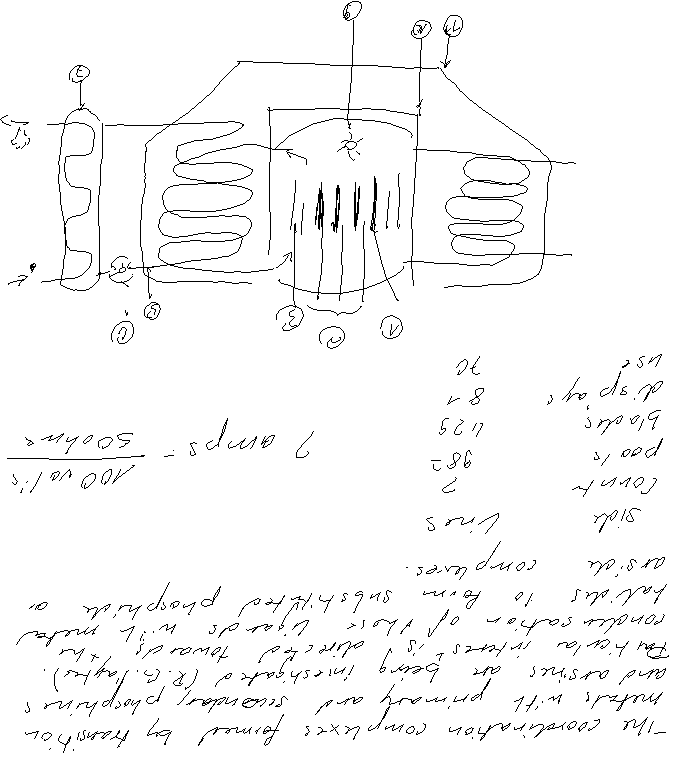 The coordination complexes formed by transition
metals with primary and secondary phosphines
and arsines are being investigated (R.G. Hayter).
Particular interest is directed towards the
condensation of those ligands with metal
halides to form substituted phosphide or
arside complexes.
side lines
count 2
pools 982
blades 429
displays 81
use 70
2 amps = 100 volts
50 ohms
1
2
3
5
7
9
11